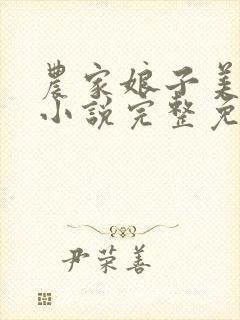 農家娘子美
小說完整免
尹荣善